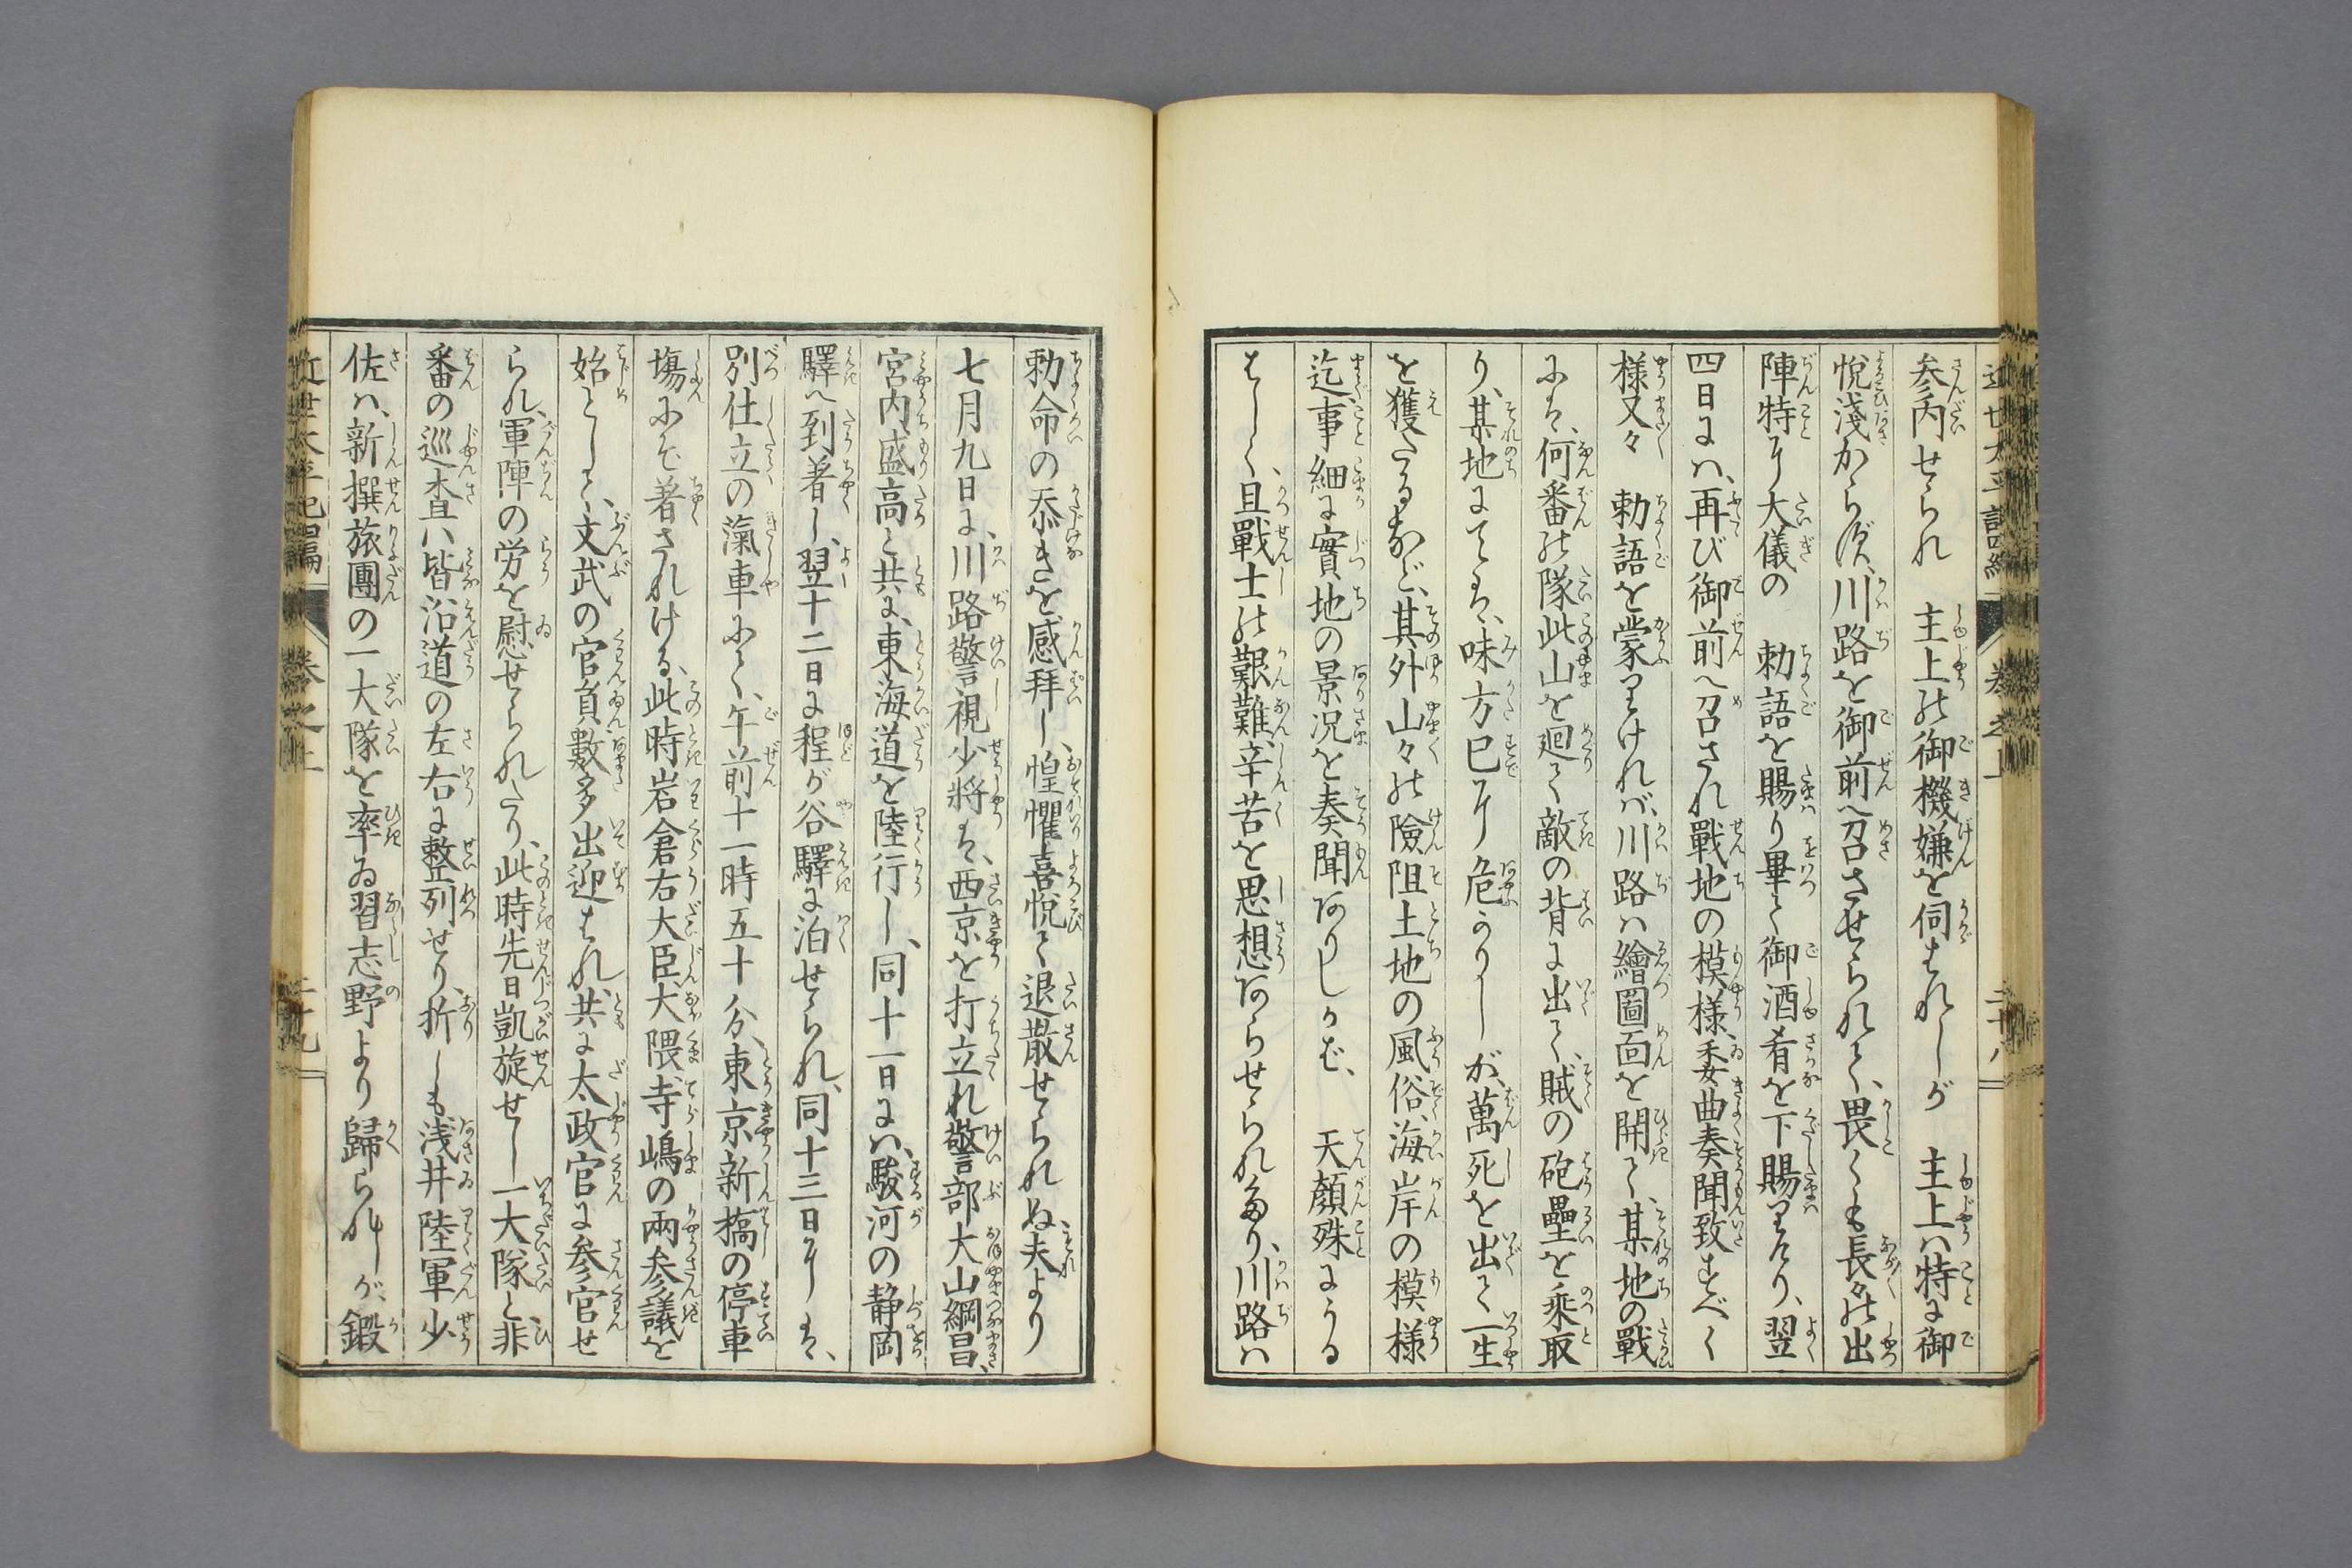 参内せられ　主上の御機嫌を伺はれしが　主上ハ特に御
悦淺からず、川路を御前へ召させられて、畏くも長々の出
陣特に大儀の　勅語を賜り畢て御酒肴を下賜はりけり、翌
四日にハ、再び御前へ召され戰地の模様、委曲奏聞致すべく
様又々　勅語を蒙りけれバ、川路ハ繪圖面を開て、某地の戰
にハ、何番の隊此山を廻て敵の背に出て、賊の砲壘を乗取
り、某地にてハ、味方已に危かりしが、萬死を出て一生
を獲たるなど、其外山々の險阻土地の風俗、海岸の模様
迄、事細に實地の景況を奏聞ありしかバ、　天顏殊にうる
はしく、且戰士の艱難、辛苦を思想あらせられたり、川路ハ
勅命の忝きを感拜し、惶懼喜悦て退散せられぬ夫より
七月九日に、川路警視少将ハ、西京を打立れ警部大山綱昌、
宮内盛高と共に、東海道を陸行し、同十一日にハ、駿河の静岡
驛へ到着し、翌十二日に程が谷驛に泊せられ、同十三日にハ、
別仕立の滊車にて、午前十一時五十分、東京新橋の停車
塲にぞ着されける、此時岩倉右大臣、大隈、寺嶋の兩参議を
始として、文武の官員數多出迎はれ、共に太政官に参官せ
られ、軍陣の労を慰せられたり、此時先日凱旋せし一大隊と非
番の巡査ハ皆沿道の左右に整列せり、折しも浅井陸軍少
佐ハ、新撰旅團の一大隊を率ゐ習志野より歸られしが、鍛
近世太平記四編　巻之上　二十九